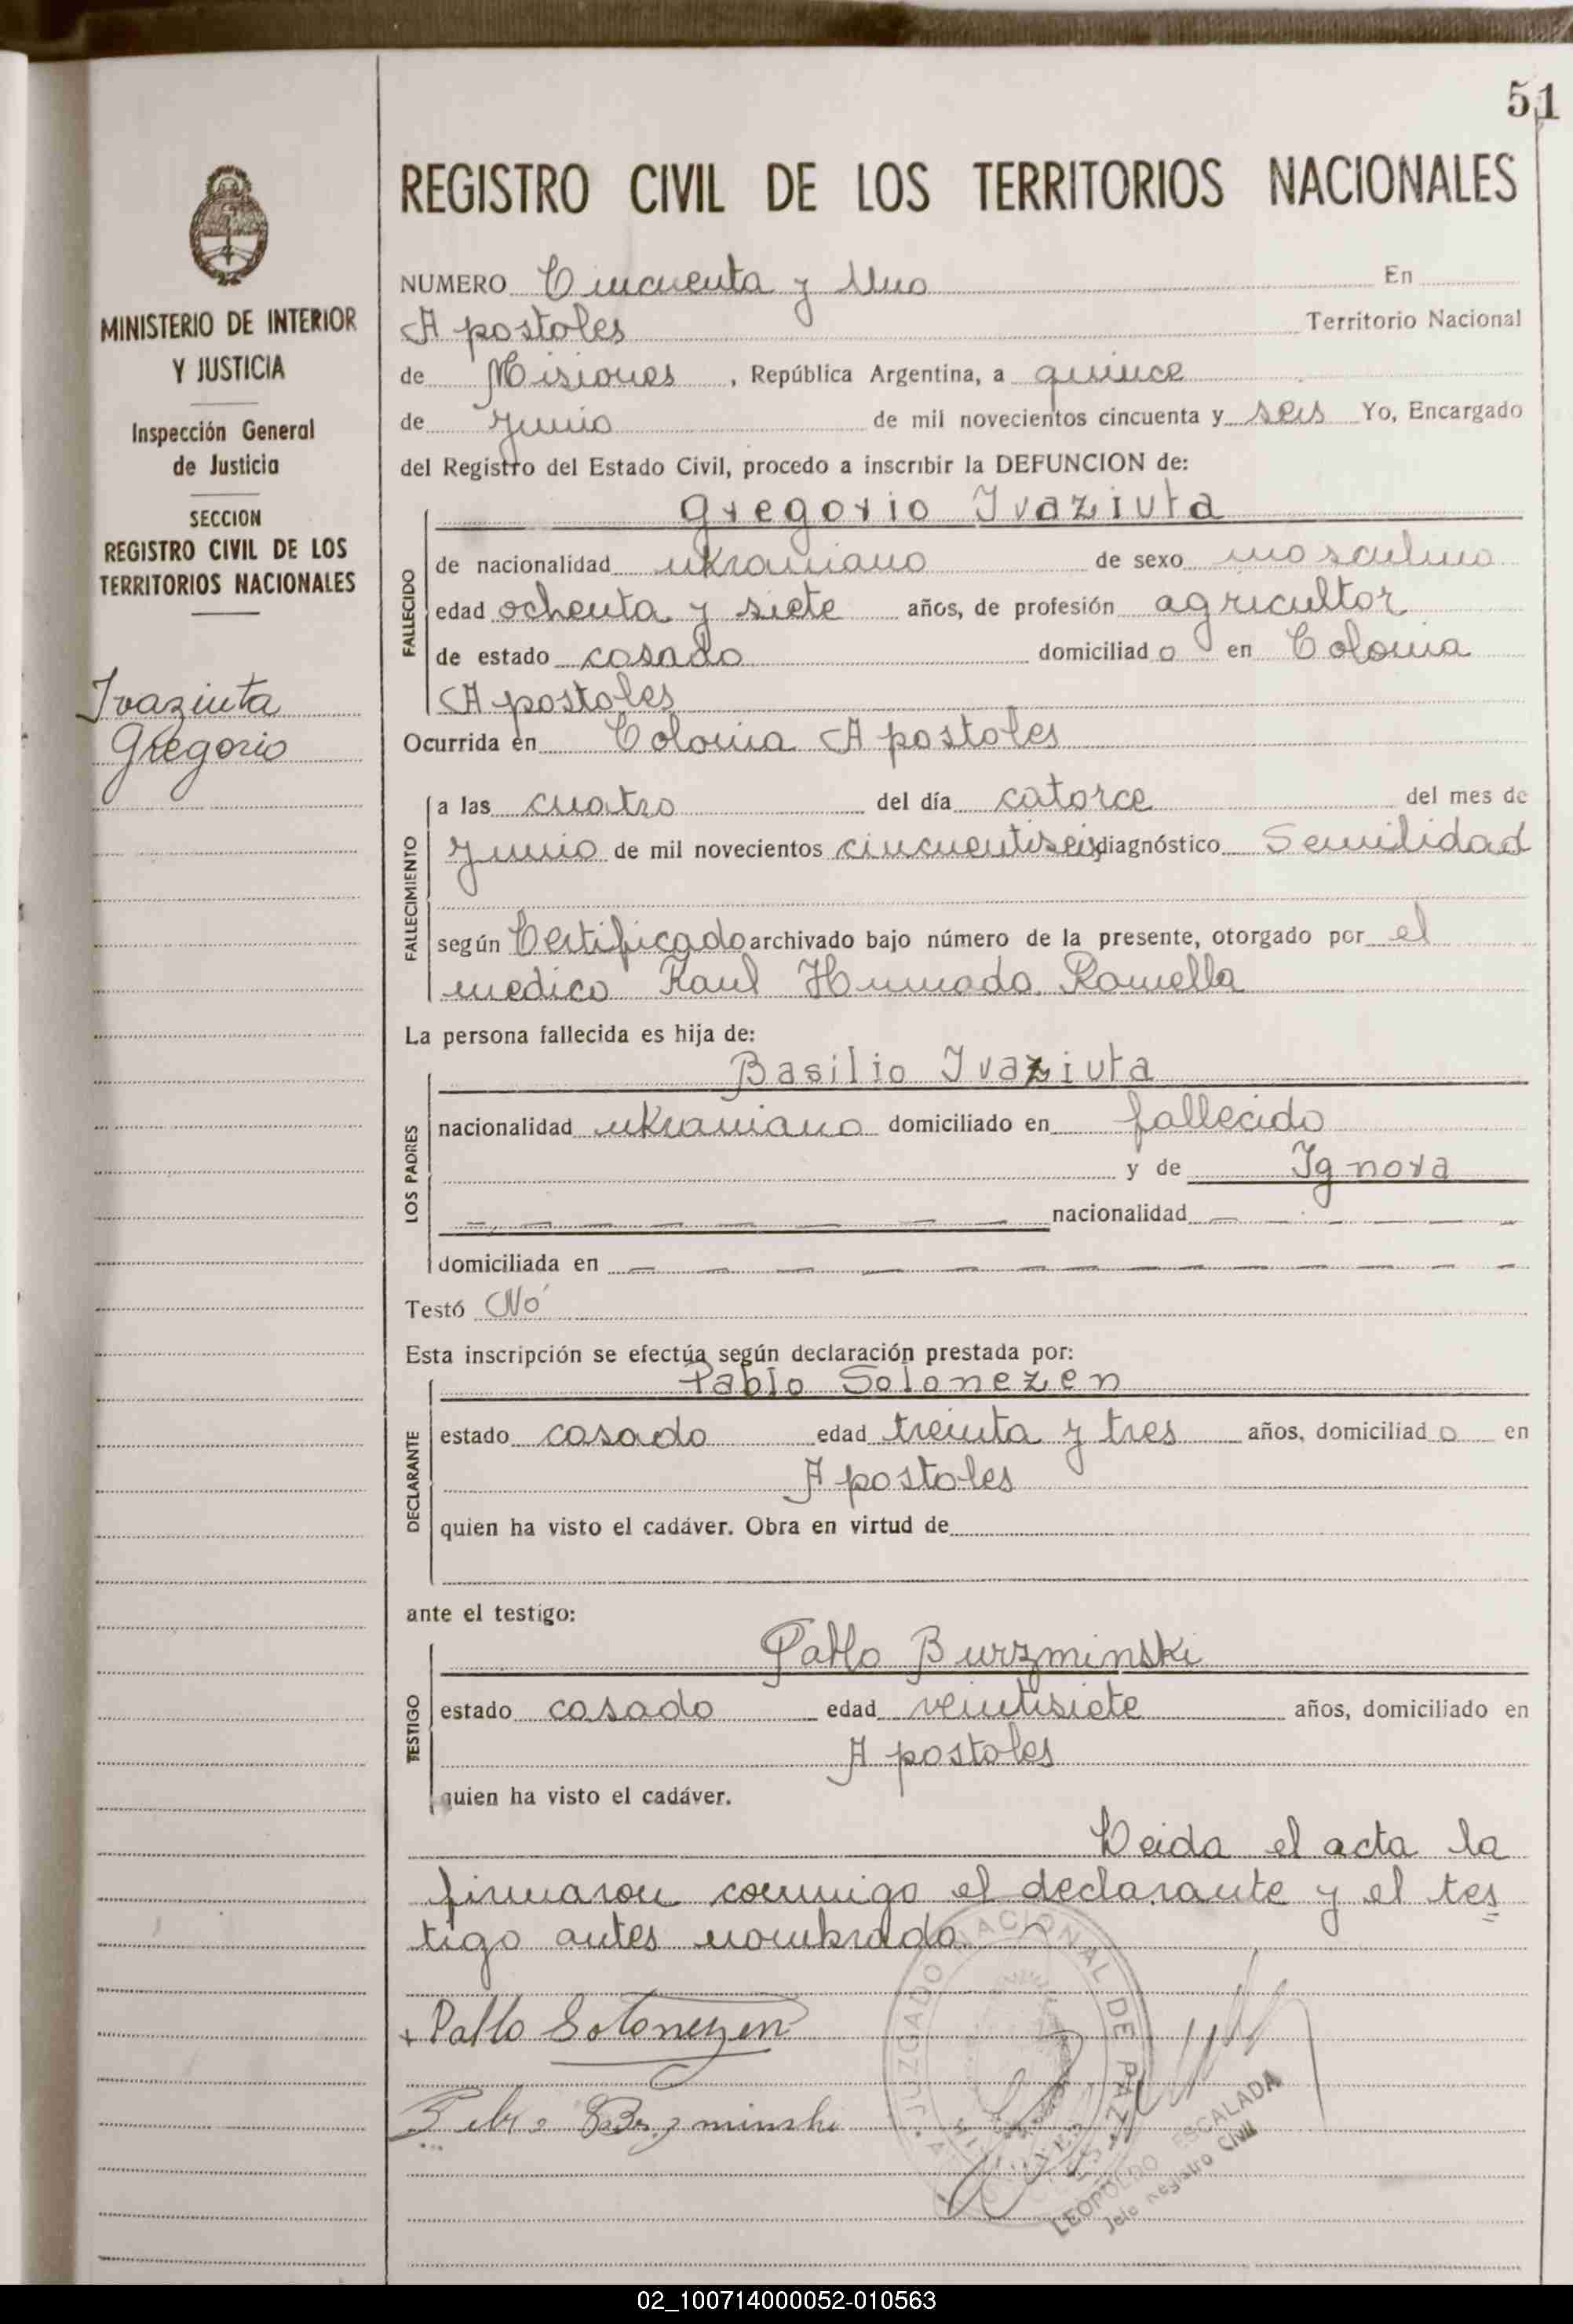 51
REGISTRO CIVIL DE LOS TERRITORIOS NACIONALES
MINISTERIO DE INTERIOR
Y JUSTICIA
Inspección General
de Justicia
SECCION
REGISTRO CIVIL DE LOS
TERRITORIOS NACIONALES
Ivaziuta
Gregorio
NUMERO Cincuenta y Uno En
Apostoles Territorio Nacional
de Misiones , República Argentina, a quince
de junio de mil novecientos cincuenta y seis Yo, Encargado
del Registro del Estado Civil, procedo a inscribir la DEFUNCION de:
Gregorio Ivaziuta
FALLECIDO
de nacionalidad ukraniano de sexo masculino
edad ochenta y siete años, de profesión agricultor
de estado casado domiciliado en Colonia
Apostoles
Ocurrida en Colonia Apostoles
FALLECIMIENTO
a las cuatro del día catorce del mes de
junio de mil novecientos cincuentiseis diagnóstico Senilidad
según Certificado archivado bajo número de la presente, otorgado por el
medico Raul Hummada Ramella
La persona fallecida es hija de:
LOS PADRES
Basilio Ivaziuta
nacionalidad ukraniano domiciliado en fallecido
y de Ignora
nacionalidad
domiciliada en
Testó No
Esta inscripción se efectúa según declaración prestada por:
DECLARANTE
Pablo Solonezen
estado casado edad treinta y tres años, domiciliado en
Apostoles
quien ha visto el cadáver. Obra en virtud de
ante el testigo:
TESTIGO
Pablo Burzminski
estado casado edad veintisiete años, domiciliado en
Apostoles
quien ha visto el cadáver.
Leida el acta la
firmaron conmigo el declarante y el tes
tigo antes nombrado.
Pablo Solonezen
JUZGADO NACIONAL DE PAZ
LEOPOLDO ESCALADA
Jefe Registro Civil
02_100714000052-010563